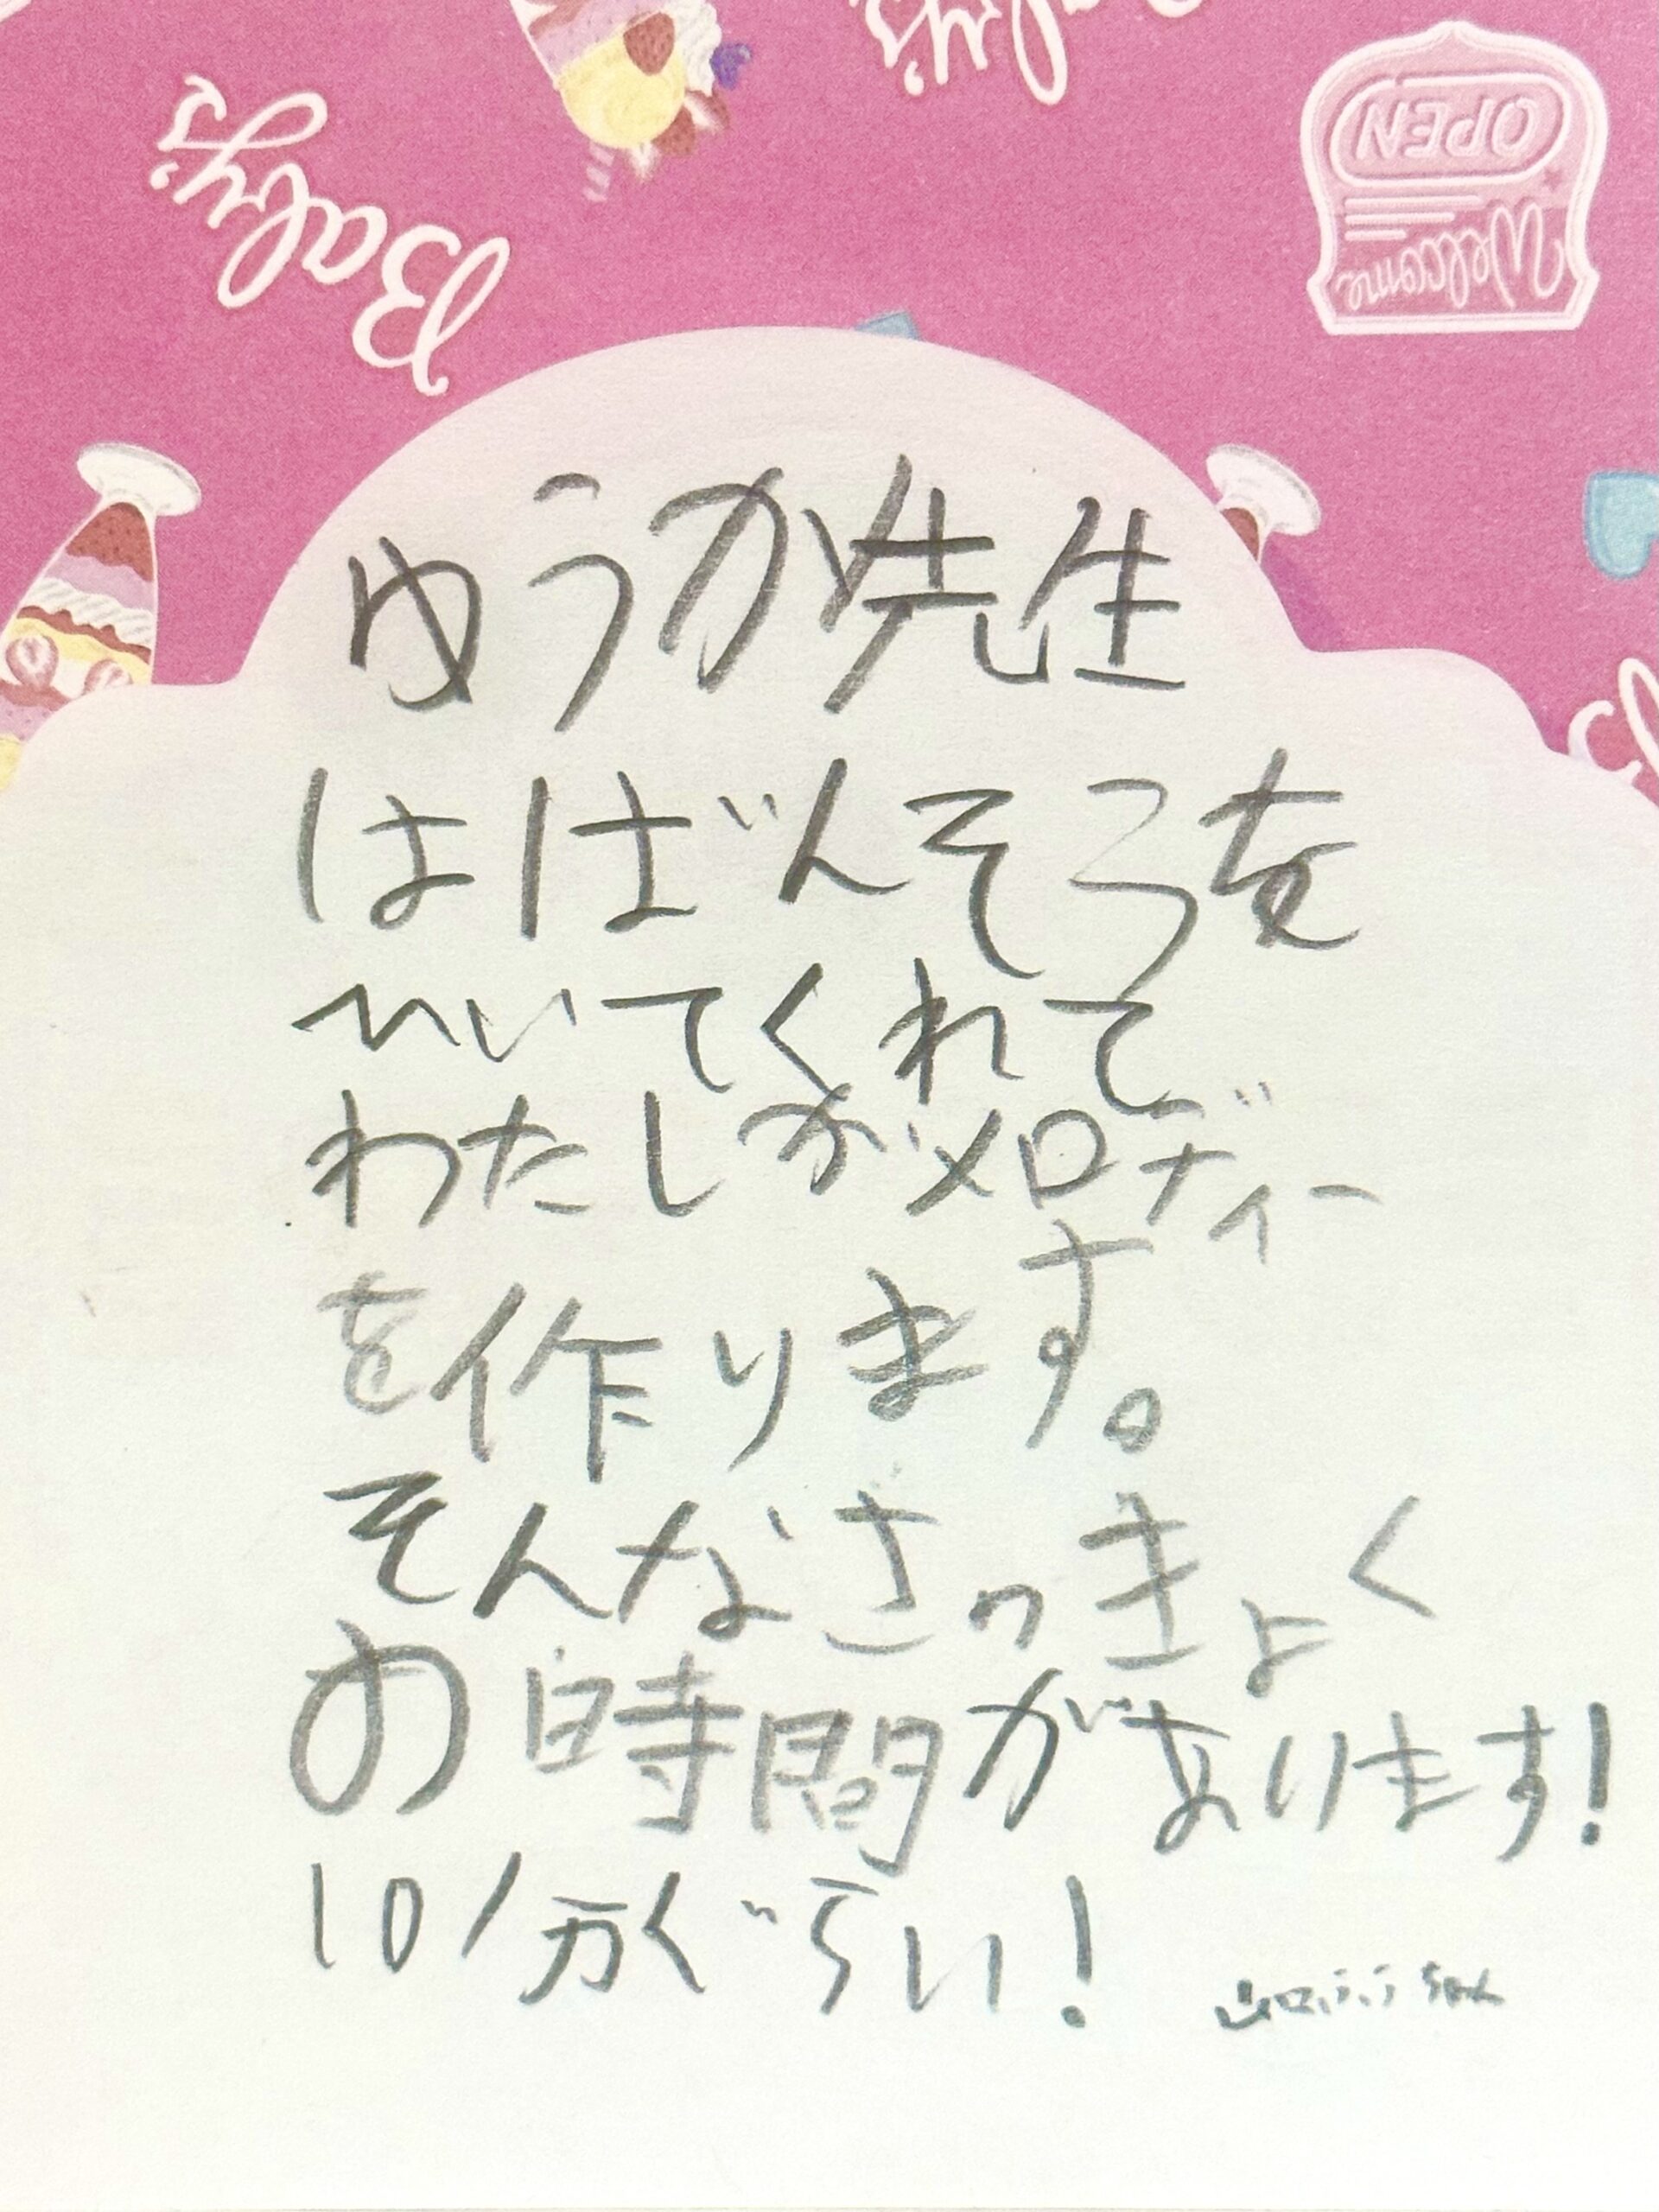 Baby's
Baby's
OPEN
Welcome
ゆうか先生
はばんそうを
ひいてくれて
わたしがメロディー
を作ります。
そんなさっきょく
の時間があります!
10分ぐらい!
山口ふうちゃん